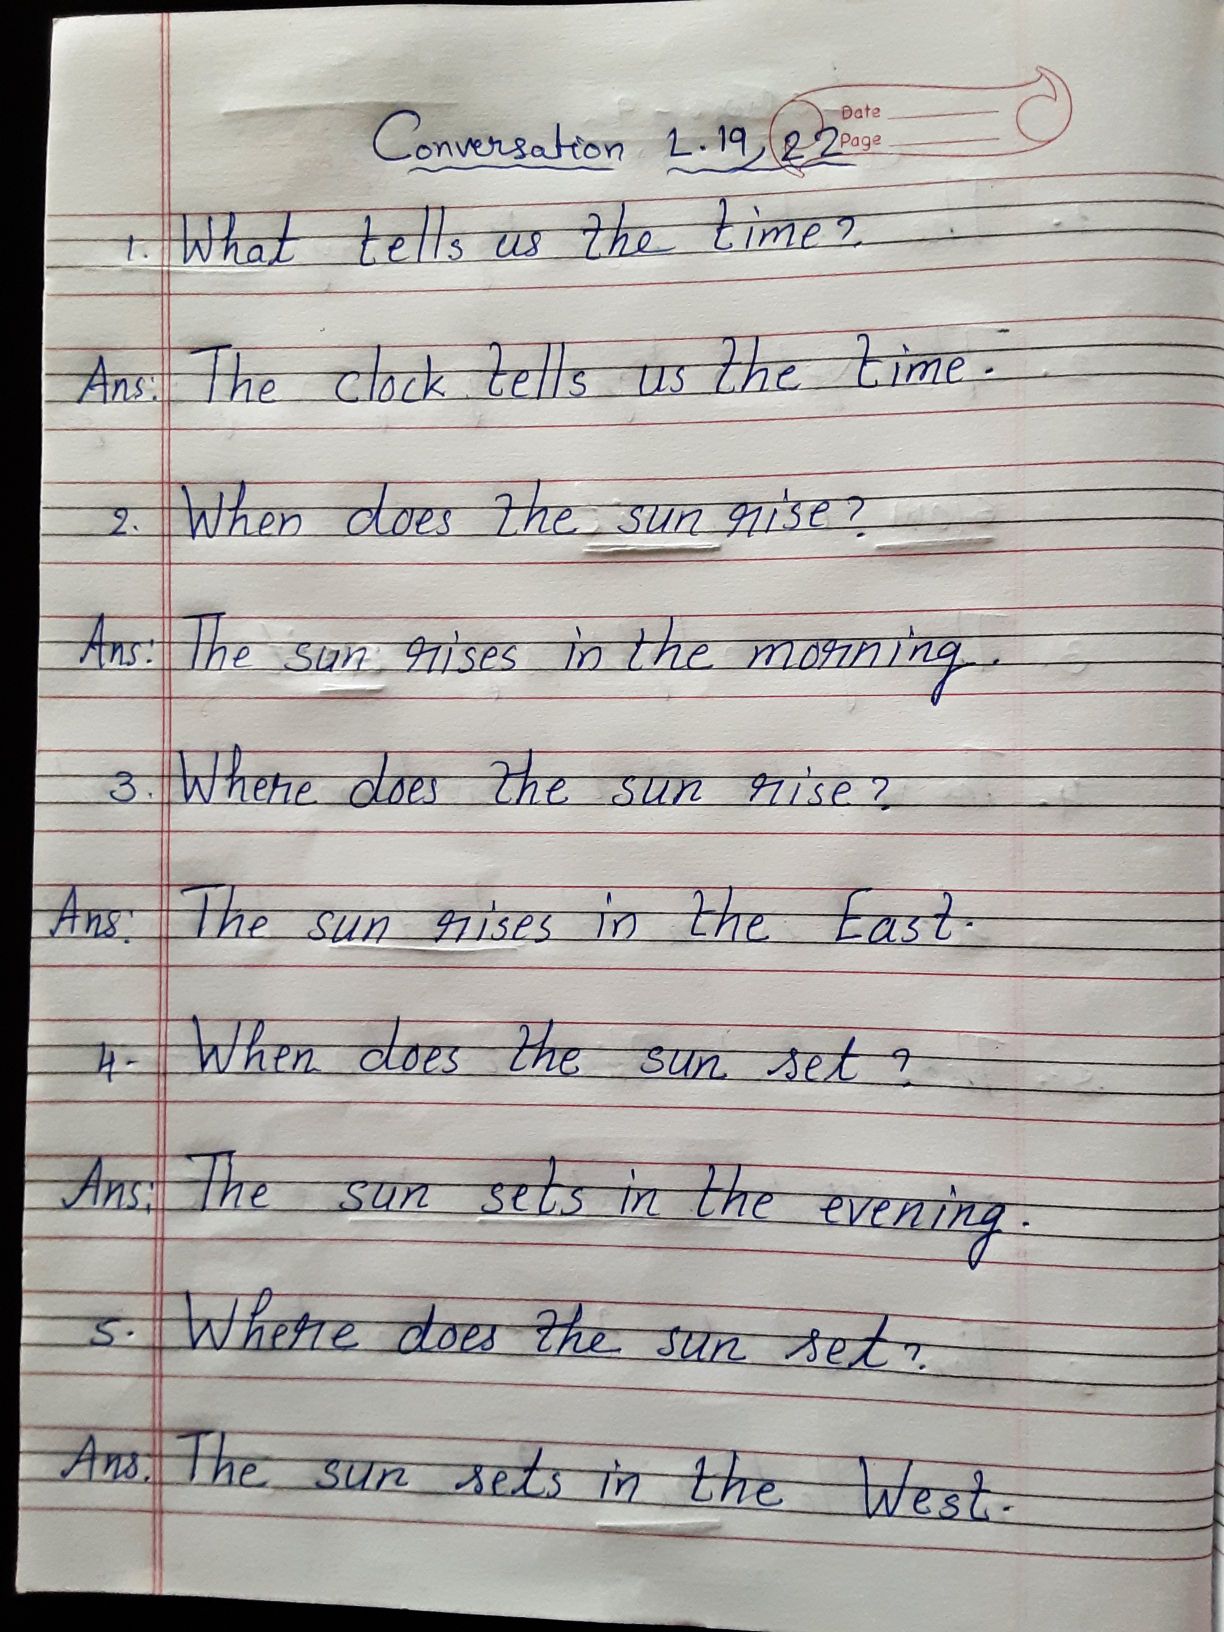 Conversation L. 19, 22
Date
Page
1. What tells us the time?
Ans: The clock tells us the time.
2. When does the sun rise?
Ans: The sun rises in the morning.
3. Where does the sun rise?
Ans: The sun rises in the East.
4. When does the sun set?
Ans: The sun sets in the evening.
5. Where does the sun set?
Ans. The sun sets in the West.